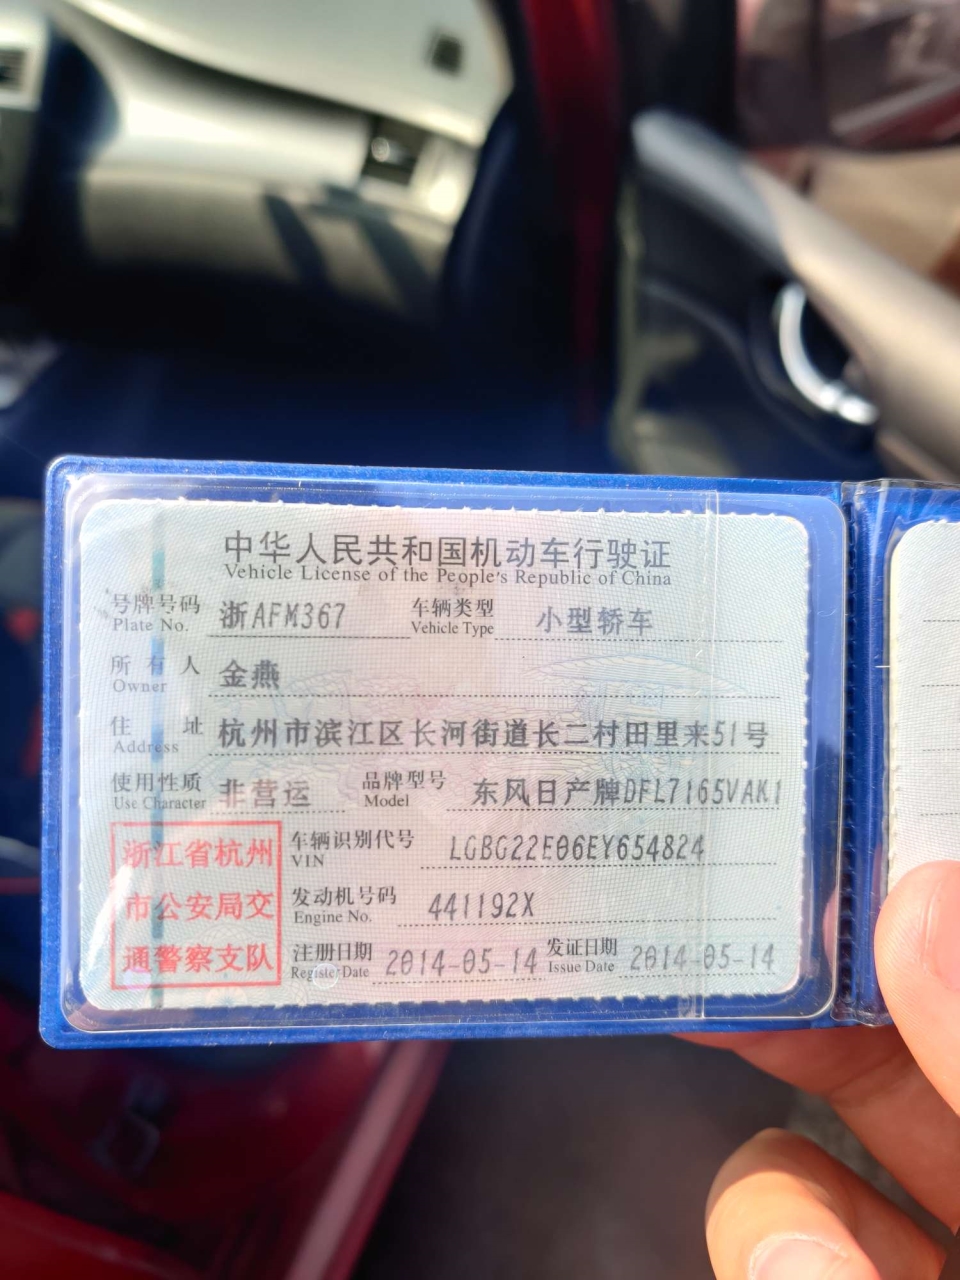 中华人民共和国机动车行驶证
Vehicle License of the People's Republic of China
号牌号码 浙AFM367 车辆类型 小型轿车
Plate No. Vehicle Type
所有人 金燕
Owner
住址 杭州市滨江区长河街道长二村田里来51号
Address
使用性质 非营运 品牌型号 东风日产牌DFL7165VAK1
Use Character Model
浙江省杭州
市公安局交
通警察支队
车辆识别代号 LGBG22E06EY654824
VIN
发动机号码 441192X
Engine No.
注册日期 2014-05-14 发证日期 2014-05-14
Register Date Issue Date